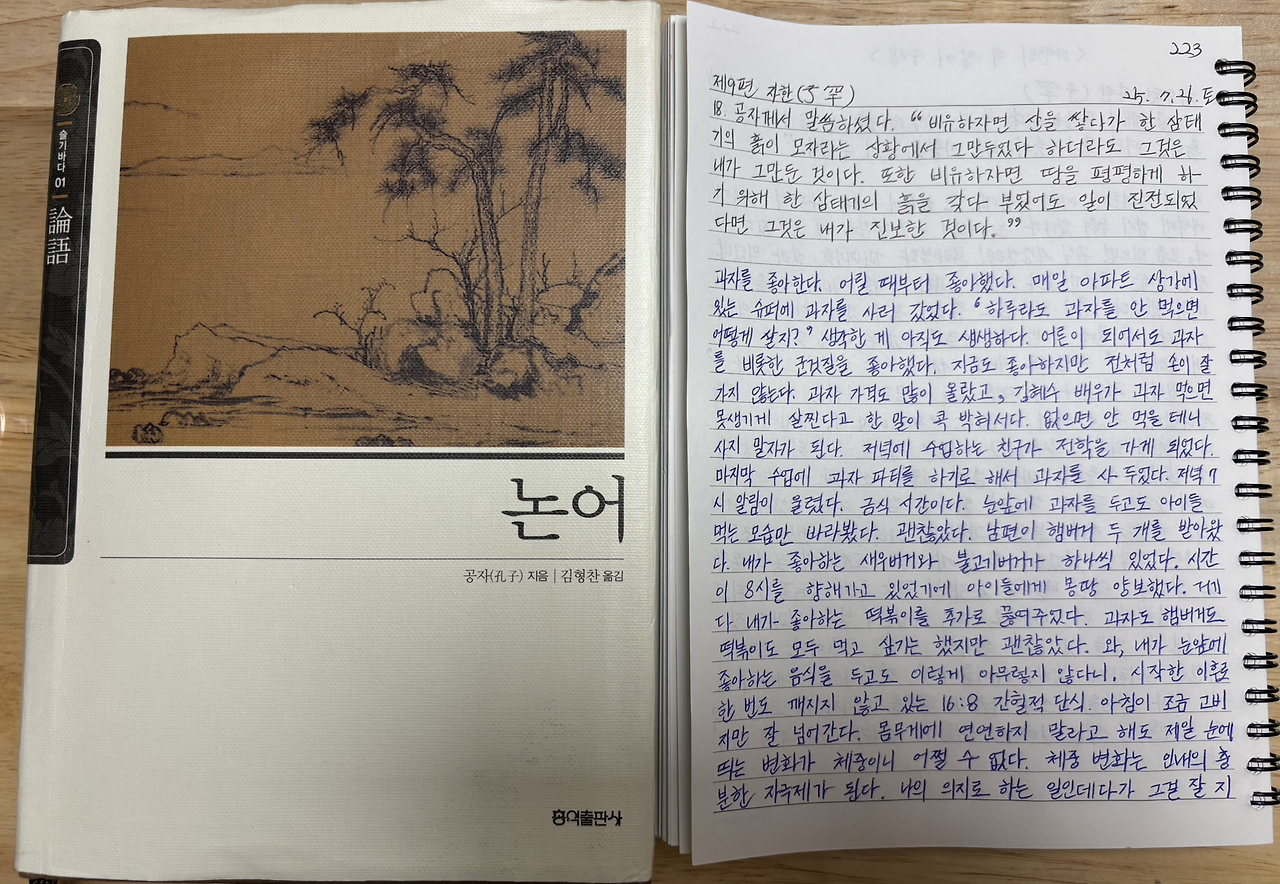 슬기바다 01
論語
논어
공자(孔子) 지음 | 김형찬 옮김
홍익출판사
223
제9편 자한(子罕)
25. 7. 26. 토
18. 공자께서 말씀하셨다. "비유하자면 산을 쌓다가 한 삼태
기의 흙이 모자라는 상황에서 그만두었다 하더라도 그것은
내가 그만둔 것이다. 또한 비유하자면 땅을 평평하게 하
기 위해 한 삼태기의 흙을 갖다 부었어도 일이 진전되었
다면 그것은 내가 진보한 것이다."
과자를 좋아한다. 어릴 때부터 좋아했다. 매일 아파트 상가에
있는 수퍼에 과자를 사러 갔었다. '하루라도 과자를 안 먹으면
어떻게 살지?' 생각한 게 아직도 생생하다. 어른이 되어서도 과자
를 비롯한 군것질을 좋아했다. 지금도 좋아하지만 전처럼 손이 잘
가지 않는다. 과자 가격도 많이 올랐고, 김혜수 배우가 과자 먹으면
못생기게 살찐다고 한 말이 콕 박혀서다. 없으면 안 먹을 테니
사지 말자가 된다. 저녁에 수업하는 친구가 전학을 가게 되었다.
마지막 수업에 과자 파티를 하기로 해서 과자를 사 두었다. 저녁 7
시 알람이 울렸다. 금식 시간이다. 눈앞에 과자를 두고도 아이들
먹는 모습만 바라봤다. 괜찮았다. 남편이 햄버거 두 개를 받아왔
다. 내가 좋아하는 새우버거와 불고기버거가 하나씩 있었다. 시간
이 8시를 향해가고 있었기에 아이들에게 몽땅 양보했다. 거기
다 내가 좋아하는 떡볶이를 추가로 끓여주었다. 과자도 햄버거도
떡볶이도 모두 먹고 싶기는 했지만 괜찮았다. 와, 내가 눈앞에
좋아하는 음식을 두고도 이렇게 아무렇지 않다니. 시작한 이후로
한 번도 깨지지 않고 있는 16:8 간헐적 단식. 아침이 조금 고비
지만 잘 넘어간다. 몸무게에 연연하지 말라고 해도 제일 눈에
띄는 변화가 체중이니 어쩔 수 없다. 체중 변화는 인내의 충
분한 자극제가 된다. 나의 의지로 하는 일인데다가 그걸 잘 지